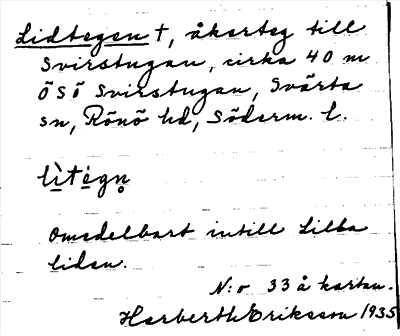 Lidtegen †, åkerteg till
Svirstugan, cirka 40 m
ÖSÖ Svirstugan, Svärta
sn, Rönö hd, Söderm. l.
lìtègn̥
Omedelbart intill Lilla
liden.
N:o 33 å kartan.
Herberth Erikson 1935